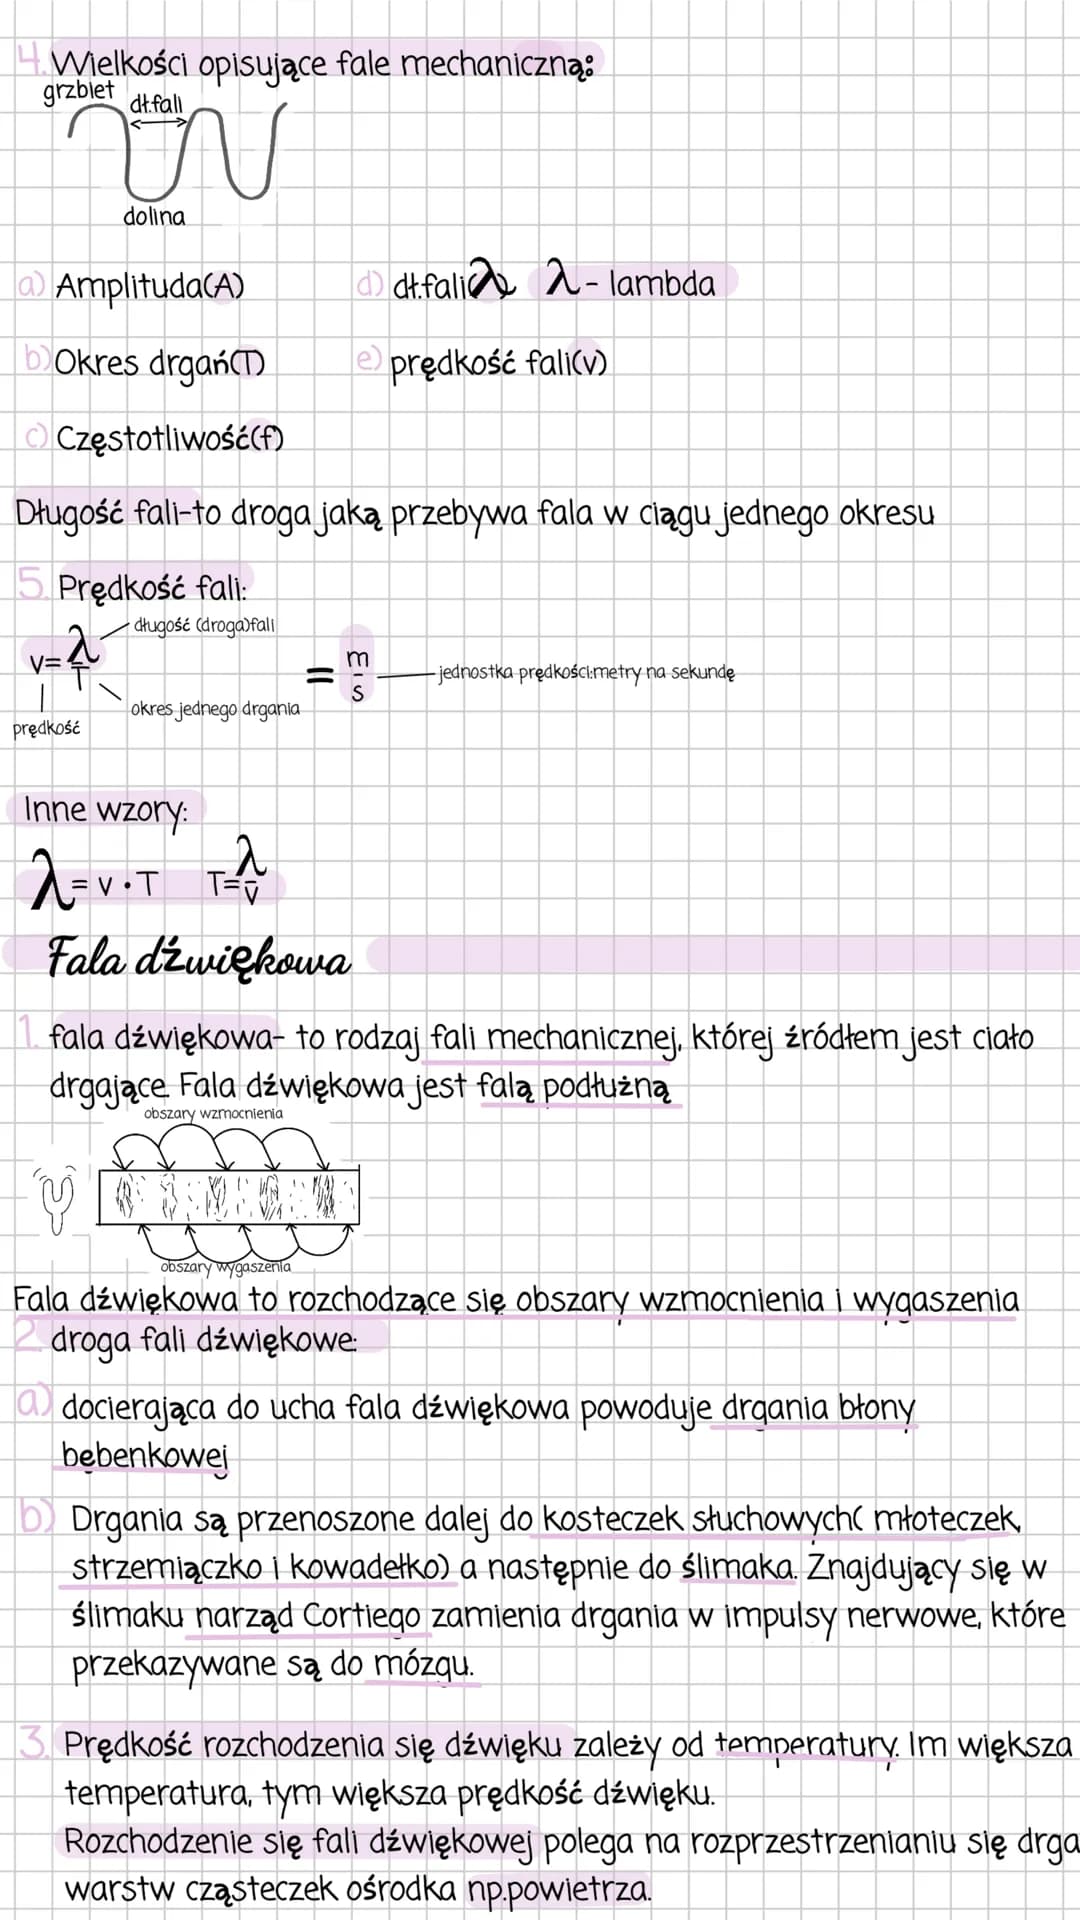 4. Wielkości opisujące fale mechaniczną:
grzbiet
dł.fali
dolina
a) Amplituda(A)
d) dł.fali(λ) λ - lambda
b) Okres drgań(T)
e) prędkość fali(v)
c) Częstotliwość(f)
Długość fali-to droga jaką przebywa fala w ciągu jednego okresu
5. Prędkość fali:
długość (droga)fali
v= λ/T = m/s jednostka prędkości:metry na sekundę
okres jednego drgania
prędkość
Inne wzory:
λ= v • T T= λ/v
Fala dźwiękowa
1. fala dźwiękowa- to rodzaj fali mechanicznej, której źródłem jest ciało
drgające. Fala dźwiękowa jest falą podłużną
obszary wzmocnienia
obszary wygaszenia
Fala dźwiękowa to rozchodzące się obszary wzmocnienia i wygaszenia
2. droga fali dźwiękowe:
a) docierająca do ucha fala dźwiękowa powoduje drgania błony
bębenkowej
b) Drgania są przenoszone dalej do kosteczek słuchowych( młoteczek,
strzemiączko i kowadełko) a następnie do ślimaka. Znajdujący się w
ślimaku narząd Cortiego zamienia drgania w impulsy nerwowe, które
przekazywane są do mózgu.
3. Prędkość rozchodzenia się dźwięku zależy od temperatury. Im większa
temperatura, tym większa prędkość dźwięku.
Rozchodzenie się fali dźwiękowej polega na rozprzestrzenianiu się drga
warstw cząsteczek ośrodka np.powietrza.